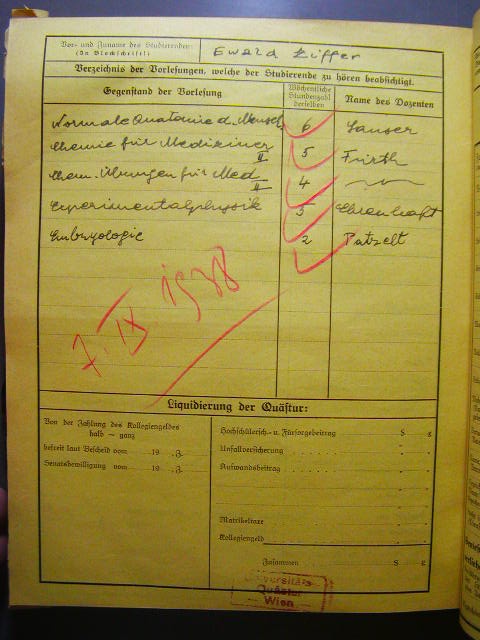 Vor- und Zuname des Studierenden: Ewald Ziffer
(In Blockschrift!)
Verzeichnis der Vorlesungen, welche der Studierende zu hören beabsichtigt.
Gegenstand der Vorlesung
Wöchentliche Stundenzahl derselben
Name des Dozenten
Normale Anatomie d. Mensch 6
Chemie für Mediziner II 5 Fürth
Chem. Übungen für Med II 4
Experimentalphysik 5 Ehrenhaft
Embryologie 2 Patzelt
7. IX 1938
Liquidierung der Quästur:
Von der Zahlung des Kollegiengeldes
halb — ganz
befreit laut Bescheid vom 19 . Z.
Senatsbewilligung vom 19 . Z.
Hochschülersch.- u. Fürsorgebeitrag S g
Unfallversicherung
Aufwandsbeitrag
Matrikeltaxe
Kollegiengeld
Zusammen S g
Universitäts-
Quästur
Wien